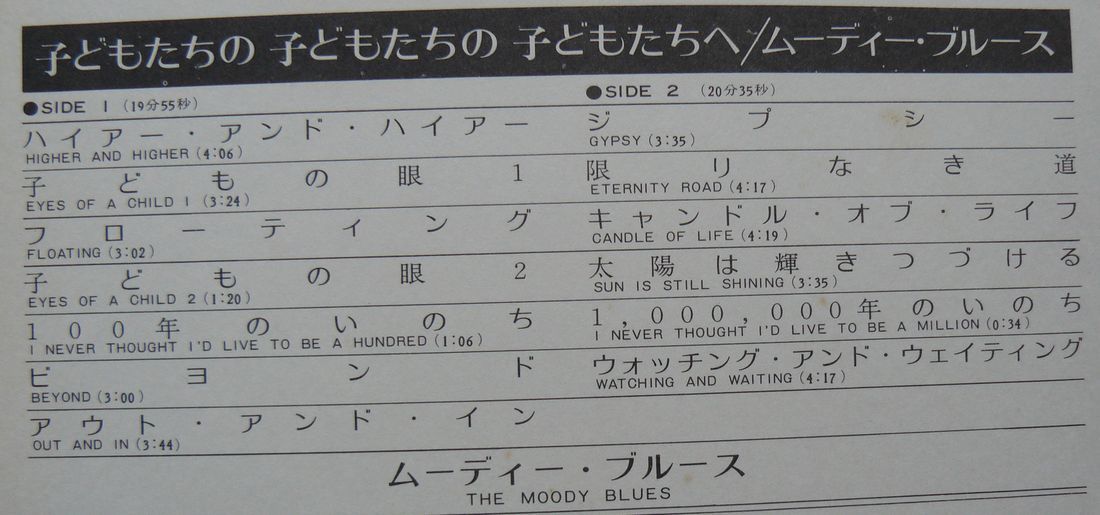 子どもたちの 子どもたちの 子どもたちへ/ムーディー・ブルース
●SIDE 1 (19分55秒)
ハイアー・アンド・ハイアー
HIGHER AND HIGHER (4:06)
子どもの眼1
EYES OF A CHILD 1 (3:24)
フローティング
FLOATING (3:02)
子どもの眼2
EYES OF A CHILD 2 (1:20)
100年のいのち
I NEVER THOUGHT I'D LIVE TO BE A HUNDRED (1:06)
ビヨンド
BEYOND (3:00)
アウト・アンド・イン
OUT AND IN (3:44)
●SIDE 2 (20分35秒)
ジプシー
GYPSY (3:35)
限りなき道
ETERNITY ROAD (4:17)
キャンドル・オブ・ライフ
CANDLE OF LIFE (4:19)
太陽は輝きつづける
SUN IS STILL SHINING (3:35)
1,000,000年のいのち
I NEVER THOUGHT I'D LIVE TO BE A MILLION (0:34)
ウォッチング・アンド・ウェイティング
WATCHING AND WAITING (4:17)
ムーディー・ブルース
THE MOODY BLUES